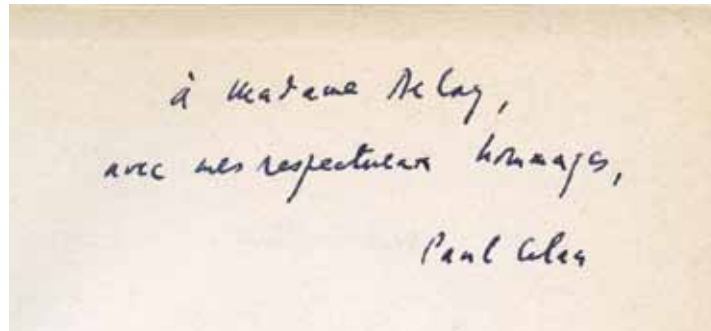 à Madame Delay,
avec mes respectueux hommages,
Paul Celan